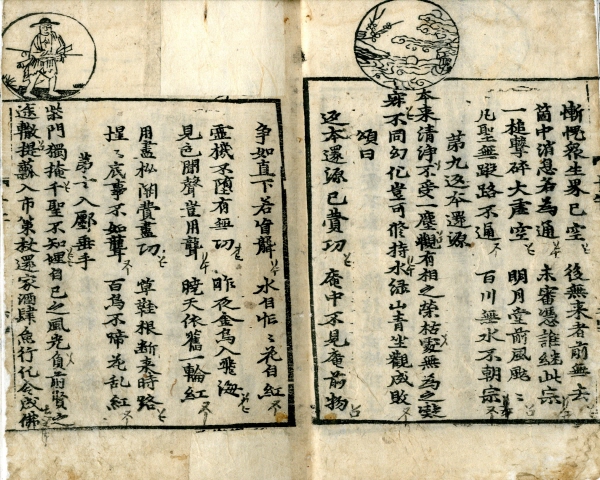 慚愧衆生界已空 後無來者前無去
箇中消息若為通 未審憑誰継此宗
一槌擊碎大虛空 明月堂前風颯〻
凡聖無蹤路不通 百川無水不朝宗
第九返本還源
本来清淨不受一塵觀有相之榮枯處無為之凝
寂不同幻化豈可修持水綠山青坐觀成敗
頌曰
返本還源已費功 庵中不見庵前物
争如直下若盲聾 水自忙〻花自紅
靈機不墮有無功 昨夜金烏入飛海
見色聞聲豈用聾 曉天依舊一輪紅
用盡机関費盡功 草鞋根断来時路
惺〻底事不如聾 百鳥不啼花乱紅
第十入鄽垂手
柴門獨掩千聖不知埋自己之風光負前賢之
途轍提瓢入市策杖還家酒肆魚行化令成佛